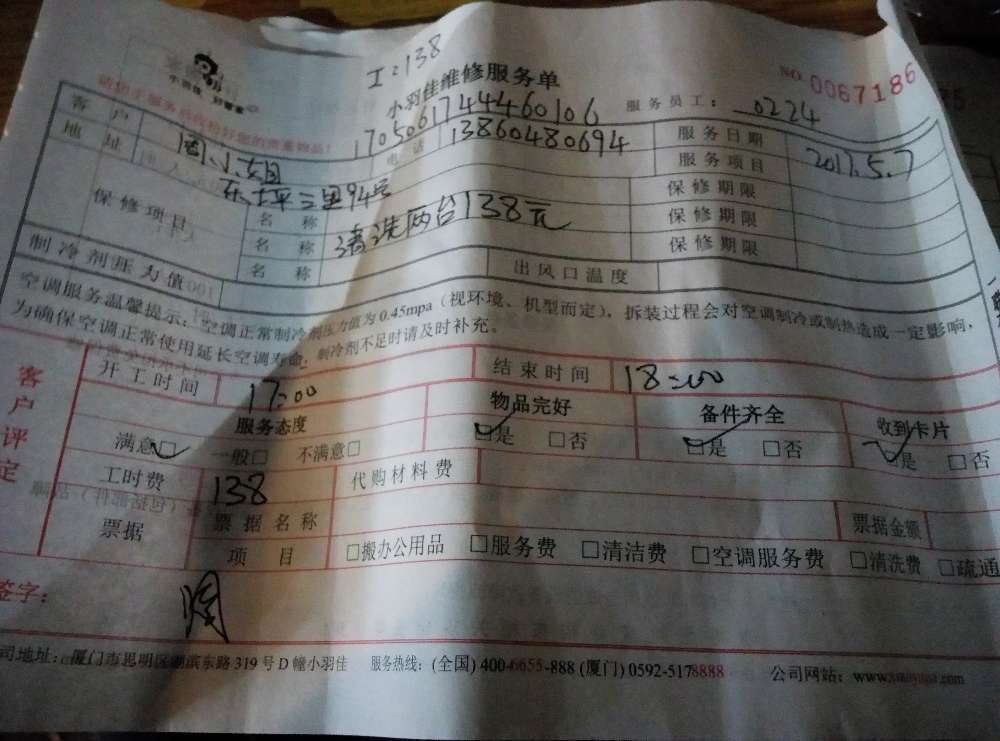 工:138
小羽佳 好管家
小羽佳维修服务单
NO 0067186
170506174446010 6
服务员工: 0224
客户 周小姐 电话 13860480694 服务日期 2017.5.7
地址 东坪三里94号 服务项目
保修项目 名称 保修期限
名称 清洗两台138元 保修期限
名称 保修期限
制冷剂压力值 出风口温度
空调服务温馨提示:空调正常制冷剂压力值为0.45mpa(视环境、机型而定),拆装过程会对空调制冷或制热造成一定影响,
为确保空调正常使用延长空调寿命,制冷剂不足时请及时补充。
客户评定
开工时间 17:00 结束时间 18:00
服务态度 物品完好 备件齐全 收到卡片
满意□ 一般□ 不满意□ □是 □否 □是 □否 □是 □否
工时费 138 代购材料费
票据 票据名称 票据金额
项目 □搬办公用品 □服务费 □清洁费 □空调服务费 □清洗费 □疏通
签字: 周
司地址:厦门市思明区湖滨东路319号D幢小羽佳 服务热线:(全国)400-6655-888 (厦门)0592-5178888 公司网站: